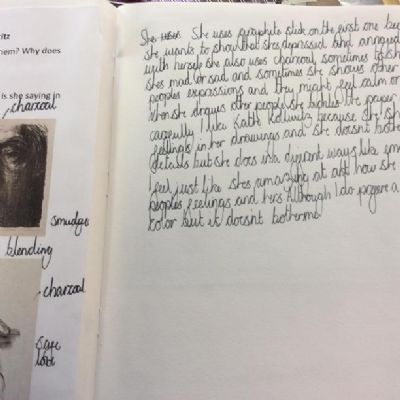 itz
hem? Why does
is she saying in
charcoal
smudges
blending
charcoal
She uses graphite stick on the first one
she wants to show that shes depressed and annoyed
with herself she also uses charcoal sometimes to sh
shes mad or sad and sometimes she shows other
peoples expressions and they might feel calm or
when she draws other people she the paper
carefully I like Käthe Kollwitz because she sh
feelings in her drawings and she doesnt
details but she does in different ways like
I feel just like shes amazing at art how she
peoples feelings and hers Although I do a
color but it doesnt bother me